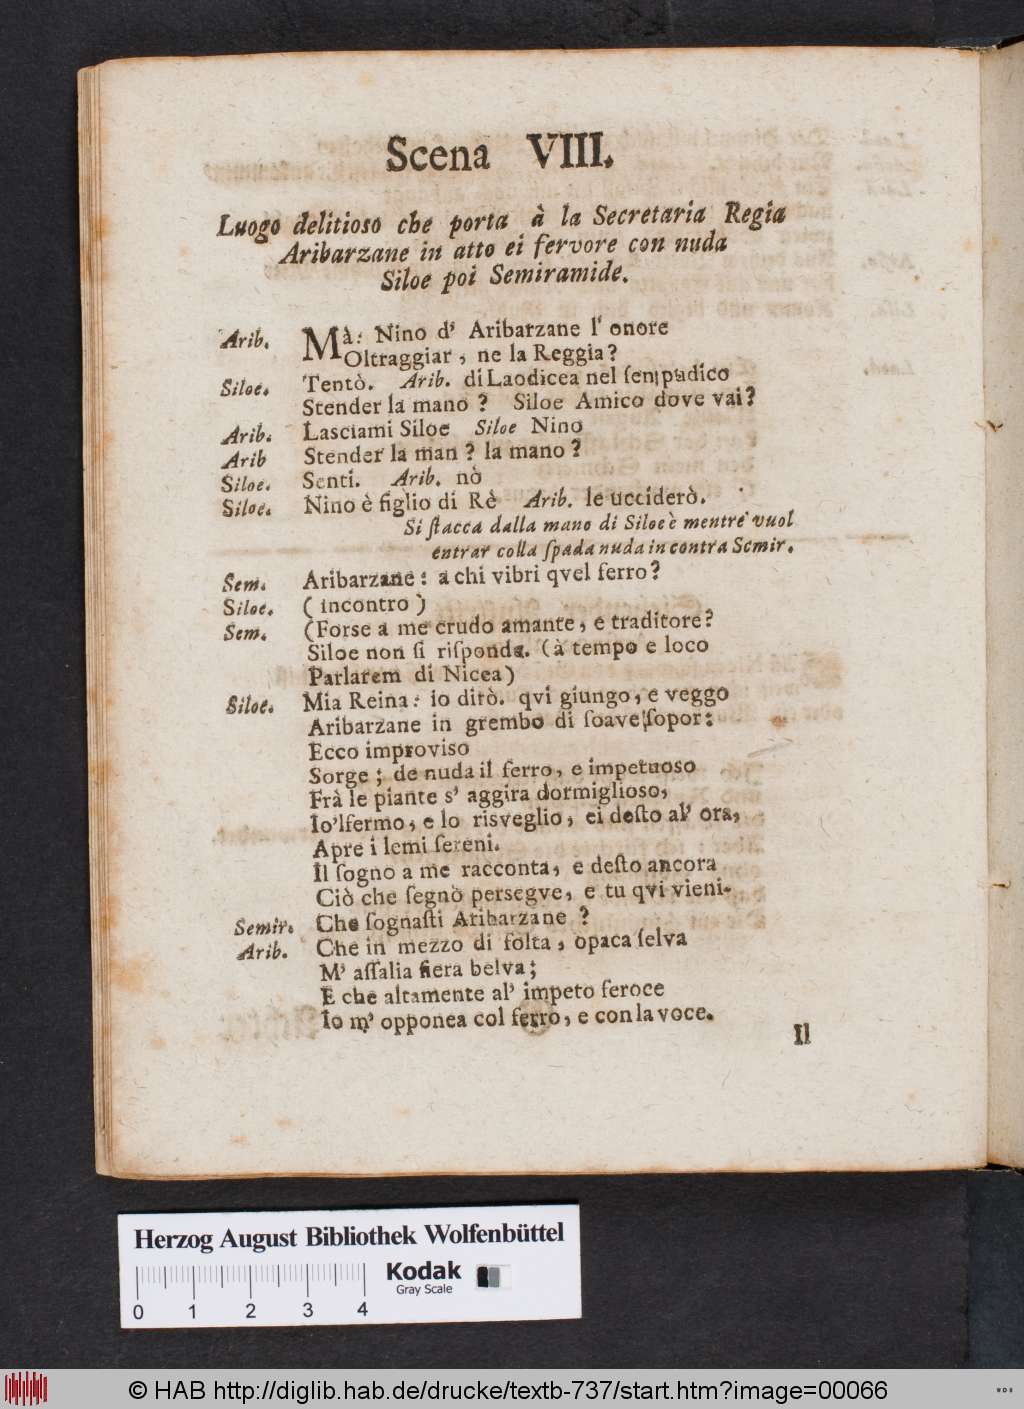 Scena VIII.
Luogo delitioso che porta à la Secretaria Regia
Aribarzane in atto ei fervore con nuda
Siloe poi Semiramide.
Arib. Mà: Nino d' Aribarzane l' onore
Oltraggiar, ne la Reggia?
Siloe. Tentò. Arib. di Laodicea nel sen pudico
Stender la mano? Siloe Amico dove vai?
Arib. Lasciami Siloe Siloe Nino
Arib Stender la man? la mano?
Siloe. Senti. Arib. nò
Siloe. Nino è figlio di Rè Arib. le ucciderò.
Si ſtacca dalla mano di Siloe è mentre vuol
entrar colla ſpada nuda incontra Semir.
Sem. Aribarzane: a chi vibri qvel ferro?
Siloe. (incontro)
Sem. (Forse a me crudo amante, e traditore?
Siloe non ſi riſponda. (à tempo e loco
Parlarem di Nicea)
Siloe. Mia Reina: io dirò. qvi giungo, e veggo
Aribarzane in grembo di ſoave ſopor:
Ecco improviso
Sorge; de nuda il ferro, e impetuoso
Frà le piante s' aggira dormiglioso,
Io'lfermo, e lo risveglio, ei deſto al' ora,
Apre i lemi ſereni.
Il ſogno a me racconta, e deſto ancora
Ciò che ſegnò persegve, e tu qvi vieni.
Semir. Che ſognaſti Aribarzane?
Arib. Che in mezzo di folta, opaca ſelva
M' aſſalia fiera belva;
E che altamente al' impeto feroce
Io m' opponea col ferro, e con la voce.
Il
Herzog August Bibliothek Wolfenbüttel
Kodak
Gray Scale
0 1 2 3 4
© HAB http://diglib.hab.de/drucke/textb-737/start.htm?image=00066